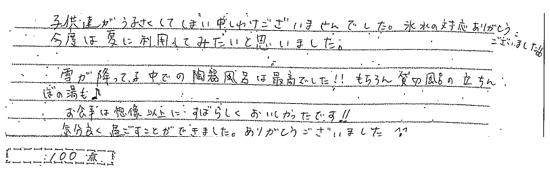 子供達がうるさくしてしまい申しわけございませんでした。氷水の対応ありがとう
ございました!!
今度は夏に利用してみたいと思いました。
雪が降ってる中での陶器風呂は最高でした!! もちろん貸切風呂の立ちん
ぼの湯も♪
お食事は想像以上にすばらしくおいしかったです!!
気分良く過ごすことができました。ありがとうございました
100点